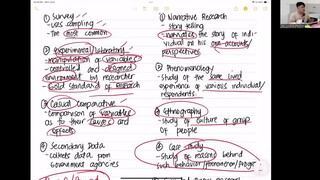 ① Survey
- uses sampling
- The most common
② Experimental / Laboratory
- manipulation of variables
- controlled and designed
environment by researcher
- Gold standard of research
③ Casual Comparative
- Comparison of variables
as to their causes and
effects
④ Secondary Data
- collects data from
Government agencies
① Narrative Research
- story telling
- narrates the story of indi-
vidual on his own accounts/
perspectives
② Phenomenology
- Study of the same lived
experience of various individual/
respondents
③ Ethnography
- Study of culture of group
of people
④ Case study
- Study of reasons behind
such behavior/phenomenon/progr